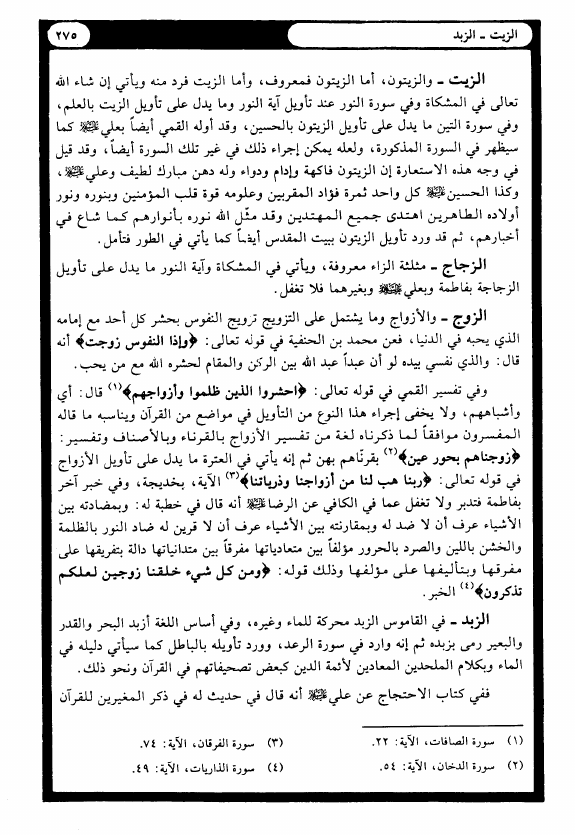 الزيت ـ الزبد
٢٧٥
الزيت ـ والزيتون، أما الزيتون فمعروف، وأما الزيت فرد منه ويأتي إن شاء الله
تعالى في المشكاة وفي سورة النور عند تأويل آية النور وما يدل على تأويل الزيت بالعلم،
وفي سورة التين ما يدل على تأويل الزيتون بالحسين، وقد أوله القمي أيضاً بعلي عليه السلام كما
سيظهر في السورة المذكورة، ولعله يمكن إجراء ذلك في غير تلك السورة أيضاً، وقد قيل
في وجه هذه الاستعارة إن الزيتون فاكهة وإدام ودواء وله دهن مبارك لطيف وعلي عليه السلام،
وكذا الحسين عليه السلام كل واحد ثمرة فؤاد المقربين وعلومه قوة قلب المؤمنين وبنوره ونور
أولاده الطاهرين اهتدى جميع المهتدين وقد مثّل الله نوره بأنوارهم كما شاع في
أخبارهم، ثم قد ورد تأويل الزيتون ببيت المقدس أيضاً كما يأتي في الطور فتأمل.
الزجاج ـ مثلثة الزاء معروفة، ويأتي في المشكاة وآية النور ما يدل على تأويل
الزجاجة بفاطمة وبعلي عليه السلام وبغيرهما فلا تغفل.
الزوج ـ والأزواج وما يشتمل على التزويج ترويج النفوس بحشر كل أحد مع إمامه
الذي يحبه في الدنيا، فعن محمد بن الحنفية في قوله تعالى: ﴿وإذا النفوس زوجت﴾ أنه
قال: والذي نفسي بيده لو أن عبداً عبد الله بين الركن والمقام لحشره الله مع من يحب.
وفي تفسير القمي في قوله تعالى: ﴿احشروا الذين ظلموا وأزواجهم﴾(١) قال: أي
وأشباههم، ولا يخفى إجراء هذا النوع من التأويل في مواضع من القرآن ويناسبه ما قاله
المفسرون موافقاً لما ذكرناه لغة من تفسير الأزواج بالقرناء وبالأصناف وتفسير:
﴿زوجناهم بحور عين﴾(٢) بقرنّاهم بهن ثم إنه يأتي في العترة ما يدل على تأويل الأزواج
في قوله تعالى: ﴿ربنا هب لنا من أزواجنا وذرياتنا﴾(٣) الآية، بخديجة، وفي خبر آخر
بفاطمة فتدبر ولا تغفل عما في الكافي عن الرضا عليه السلام أنه قال في خطبة له: وبمضادته بين
الأشياء عرف أن لا ضد له وبمقارنته بين الأشياء عرف أن لا قرين له ضاد النور بالظلمة
والخشن باللين والصرد بالحرور مؤلفاً بين متعادياتها مفرقاً بين متدانياتها دالة بتفريقها على
مفرقها وبتأليفها على مؤلفها وذلك قوله: ﴿ومن كل شيء خلقنا زوجين لعلكم
تذكرون﴾(٤) الخبر.
الزبد ـ في القاموس الزبد محركة للماء وغيره، وفي أساس اللغة أزبد البحر والقدر
والبعير رمى بزبده ثم إنه وارد في سورة الرعد، وورد تأويله بالباطل كما سيأتي دليله في
الماء وبكلام الملحدين المعادين لأئمة الدين كبعض تصحيفاتهم في القرآن ونحو ذلك.
ففي كتاب الاحتجاج عن علي عليه السلام أنه قال في حديث له في ذكر المغيرين للقرآن
(١) سورة الصافات، الآية: ٢٢.
(٢) سورة الدخان، الآية: ٥٤.
(٣) سورة الفرقان، الآية: ٧٤.
(٤) سورة الذاريات، الآية: ٤٩.